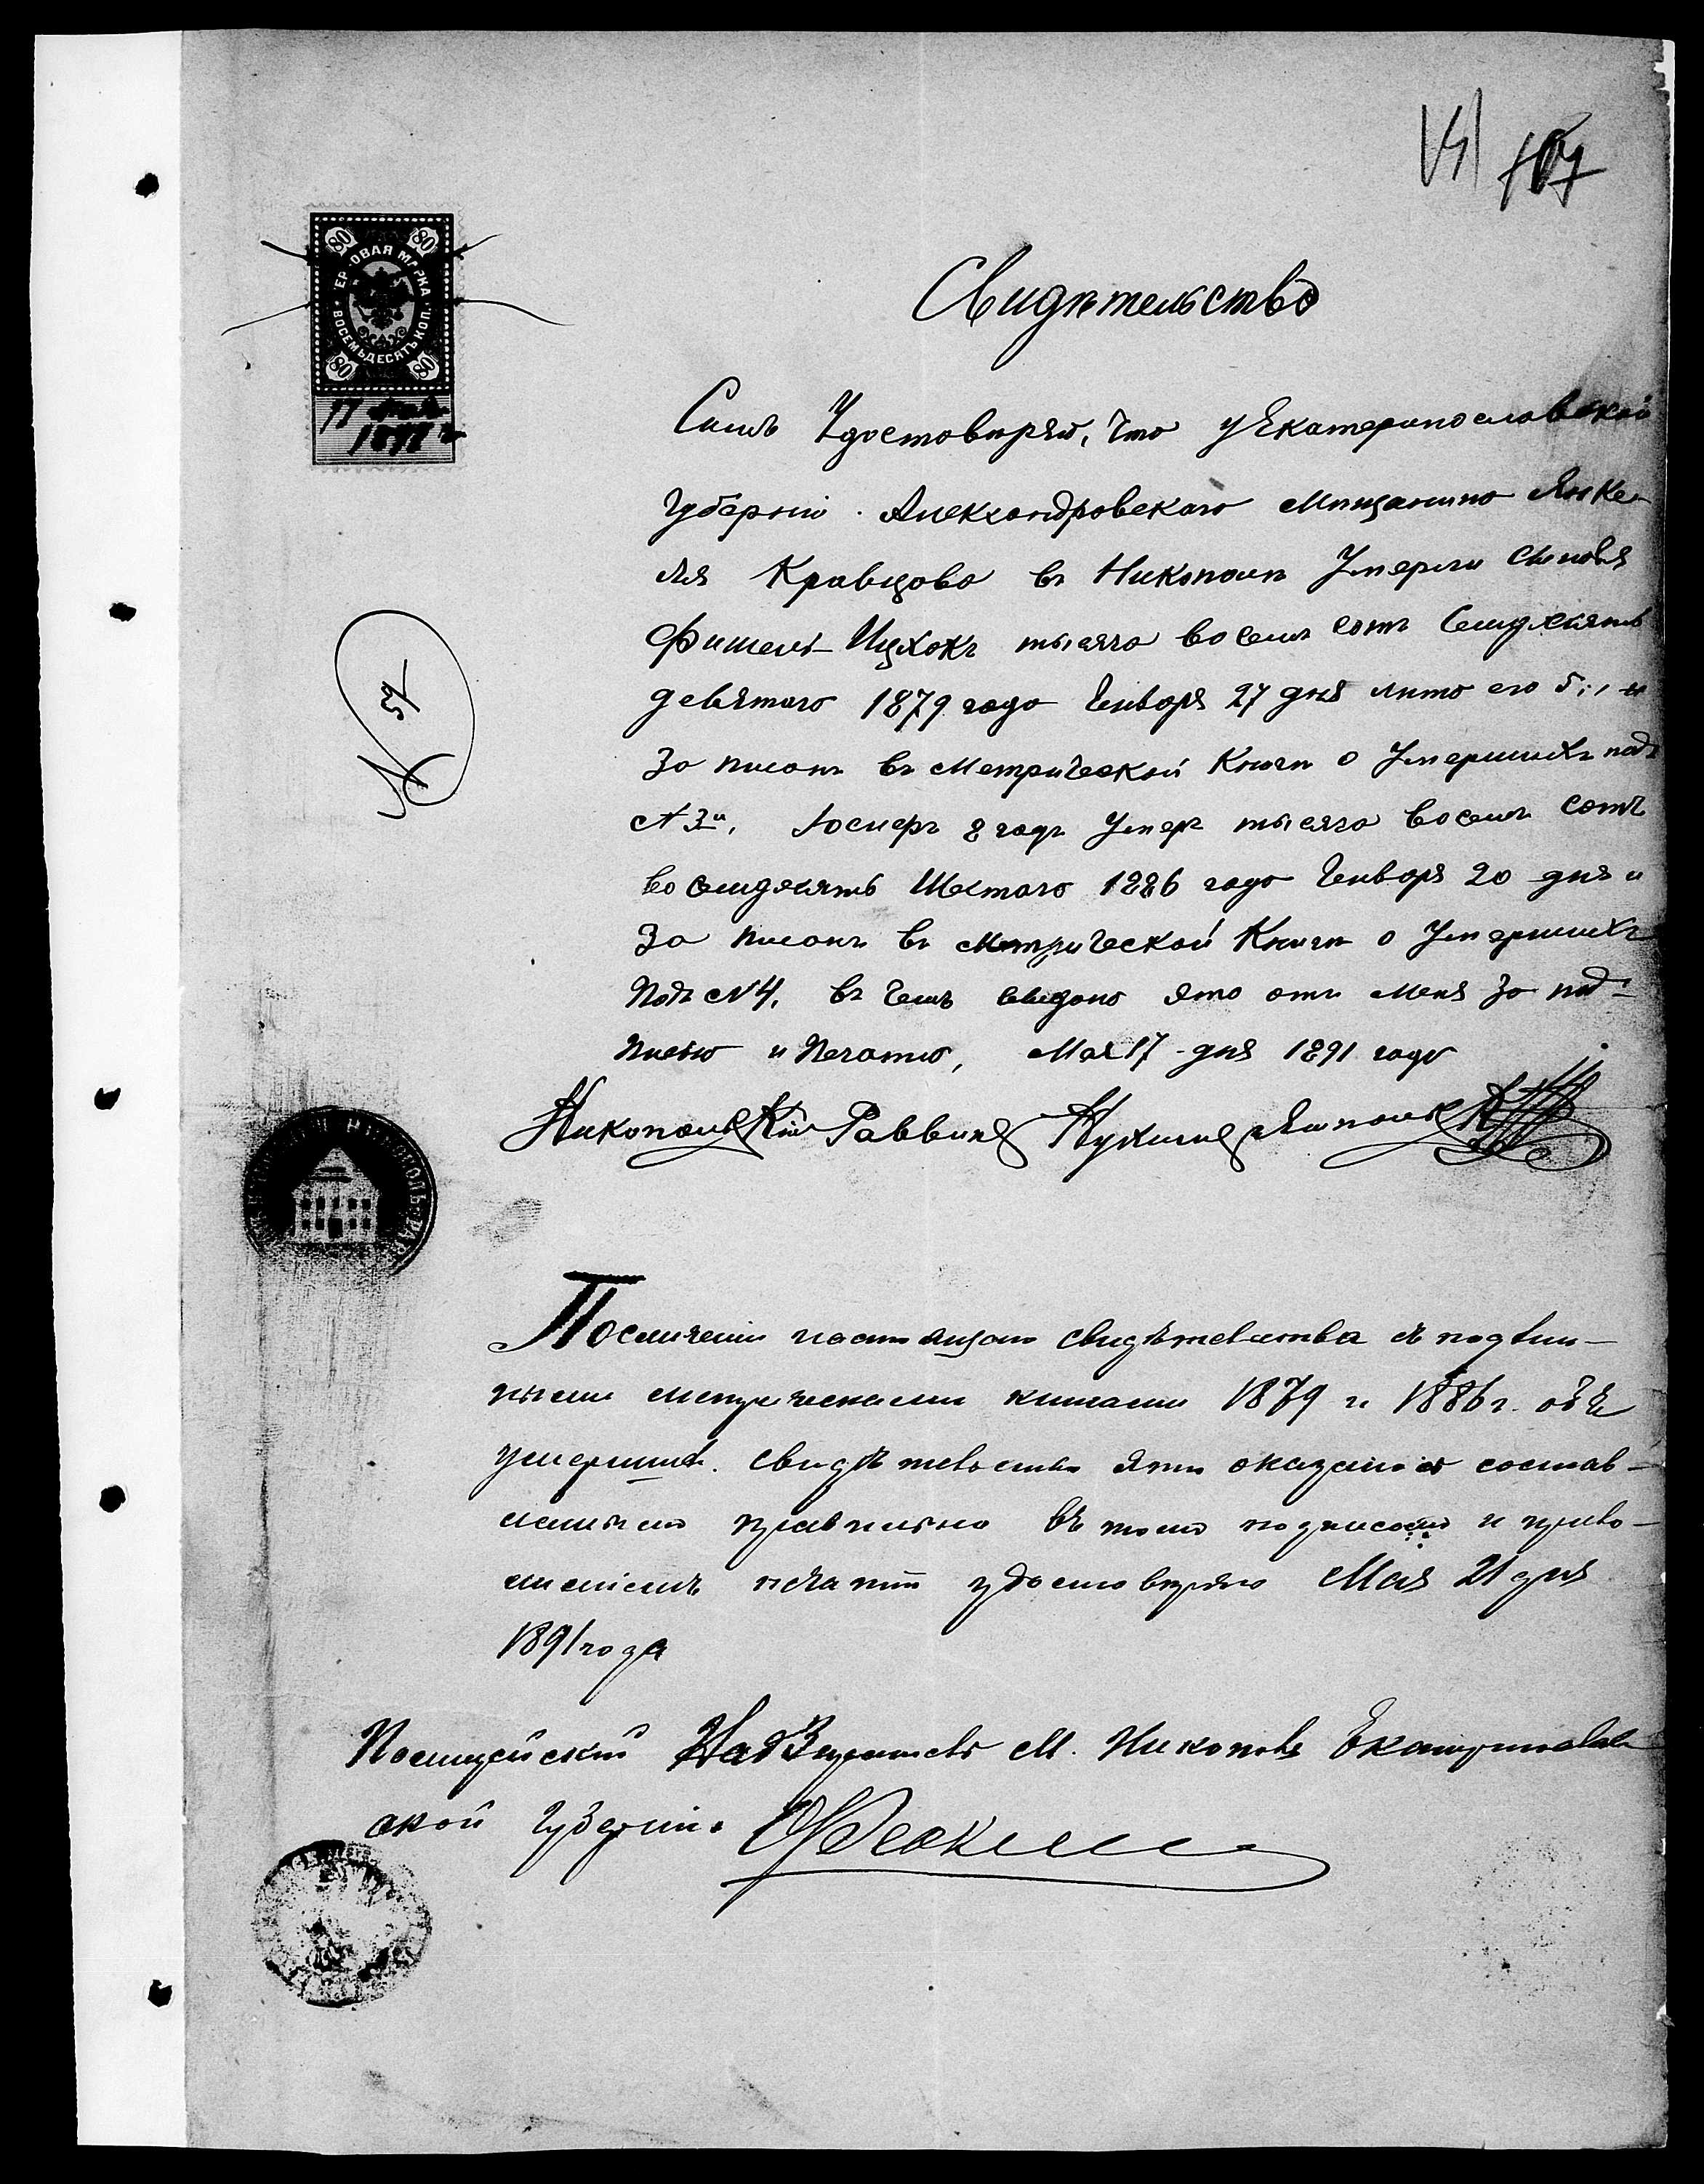 107
80 80
ГЕРБОВАЯ МАРКА
ВОСЕМЬДЕСЯТЪ КОП.
80 80
17
1891 г
Свидѣтельство
Симъ Удостовѣряю, что у Екатеринославской
Губерніи Александровскаго Мѣщанина Янке-
ля Кравцова въ Никополѣ Умерли Сыновья
Фишель-Ицхокъ тысяча восемъ сотъ Семидесятъ
девятаго 1879 года Генваря 27 дня лѣта его 5, и
За писанъ въ Метрической Книгѣ о Умершихъ подъ
№ 3й, 8 годъ Умеръ тысяча восемъ сотъ
восемидесятъ Шестаго 1886 года Генваря 20 дня и
За писанъ въ Метрической Книгѣ о Умершихъ
Подъ № 4, въ Чемъ выдано это отъ Меня За под-
писью и Печатью, Мая 17 дня 1891 года
Никопольскій Раввинъ
№ 52
По сличеніи настоящаго свидѣтельства съ подлин-
ными метрическими книгами 1879 и 1886 г. объ
умершихъ свидѣтельство это оказалось состав-
леннымъ правильно въ томъ подписомъ и прило-
женіемъ печати удостовѣряю Мая 21 дня
1891 года
Полицейскій Надзиратель М. Никополя Екатеринослав-
ской Губерніи